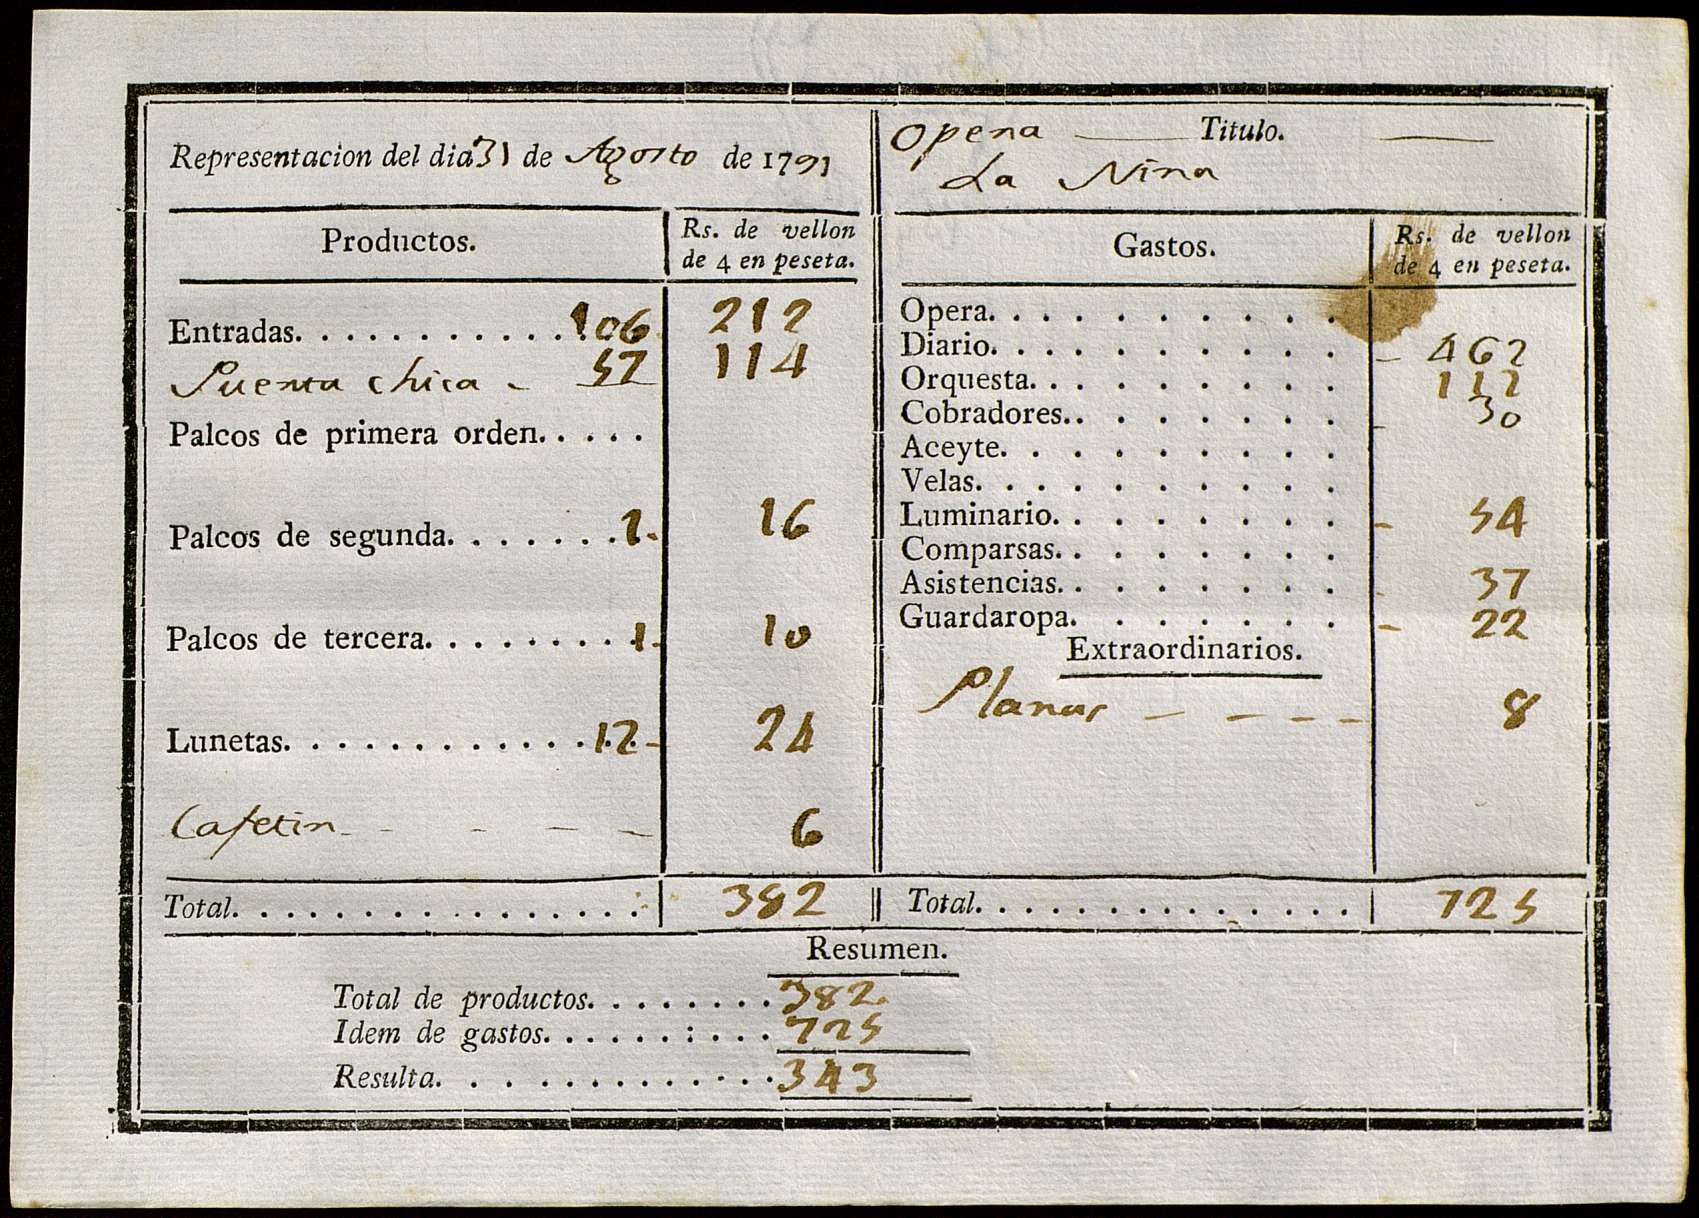 Representacion del dia 31 de Agosto de 1791
Productos.
Rs. de vellon
de 4 en peseta.
Entradas. . . . . . . . . . . 106 212
Puenta chica - 57 114
Palcos de primera orden. . . . .
Palcos de segunda. . . . . . . 1. 16
Palcos de tercera. . . . . . . . 1. 10
Lunetas. . . . . . . . . . . . . 12 - 24
Cafetin - - - - - 6
Total. . . . . . . . . . . . . . . . 382
Opera — Titulo. —
La Nina
Gastos.
Rs. de vellon
de 4 en peseta.
Opera. . . . . . . . . .
Diario. . . . . . . . . . - 462
Orquesta. . . . . . . . . 112
Cobradores. . . . . . . . - 30
Aceyte. . . . . . . . . .
Velas. . . . . . . . . .
Luminario. . . . . . . . - 54
Comparsas. . . . . . . .
Asistencias. . . . . . . . - 37
Guardaropa. . . . . . . - 22
Extraordinarios.
Planas - - - - 8
Total. . . . . . . . . . . . . . . 725
Resumen.
Total de productos. . . . . . . . 382.
Idem de gastos. . . . . . : . . . 725
Resulta. . . . . . . . . . . . . 343